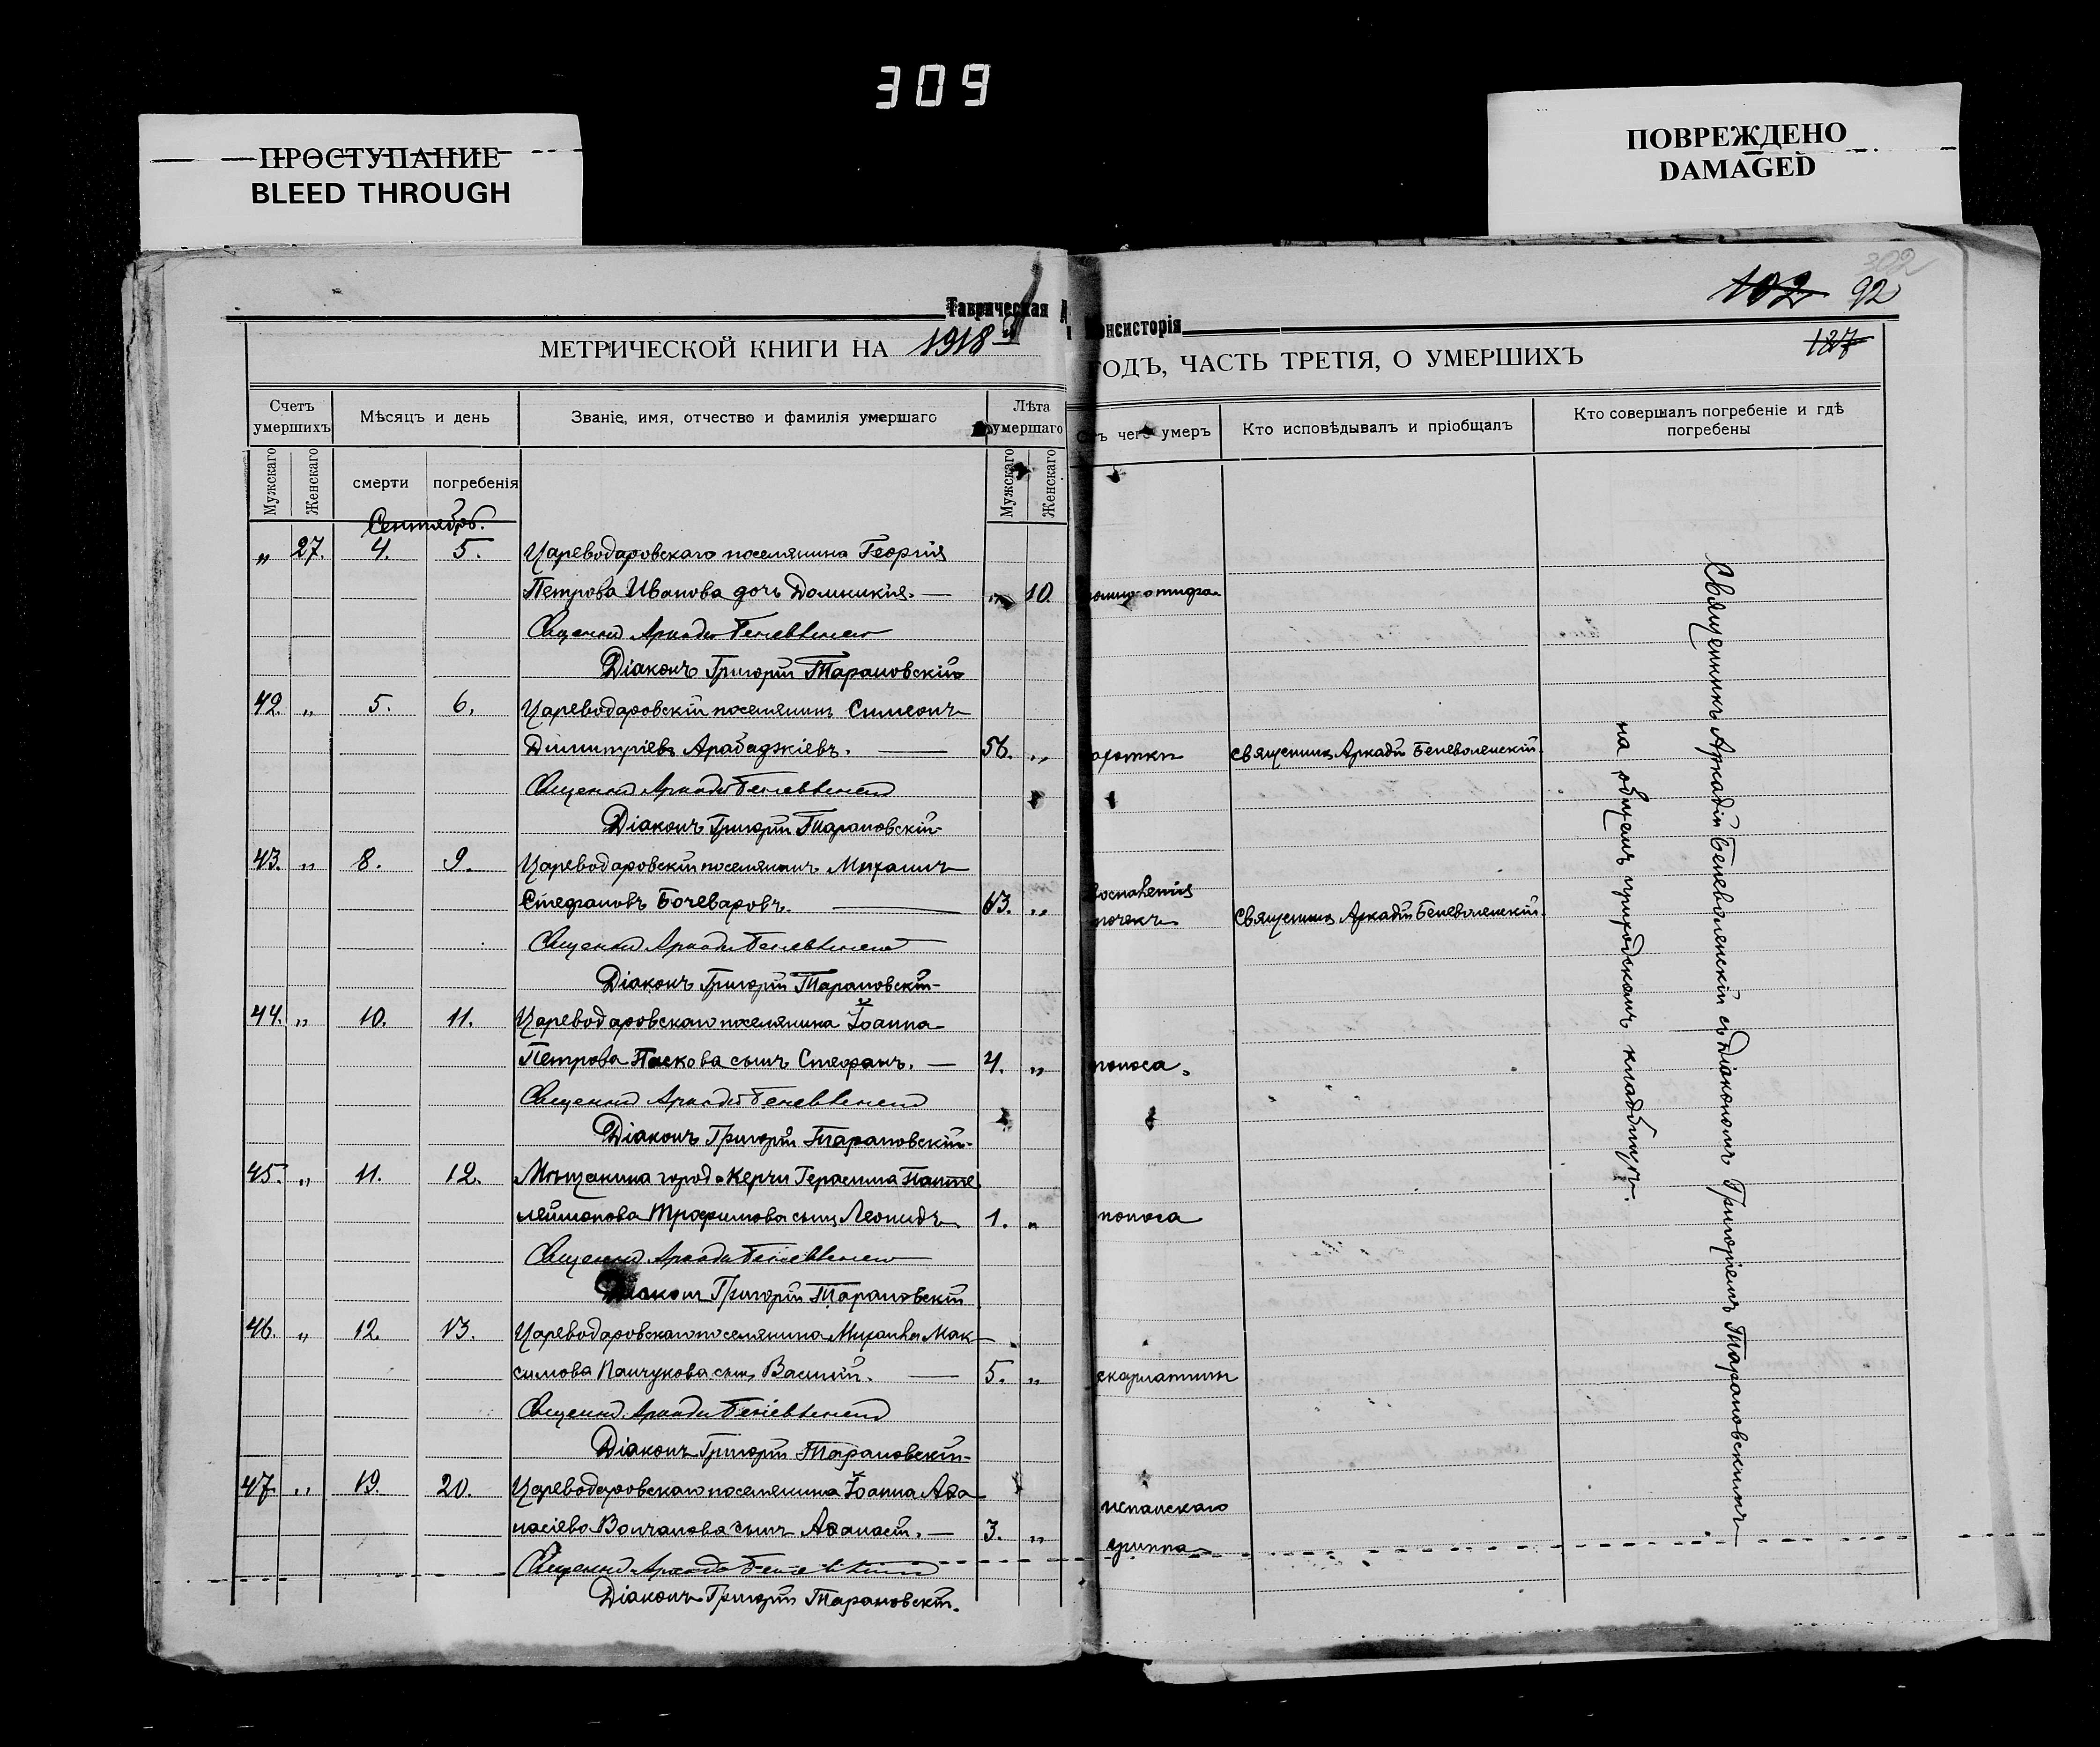 309
ПРОСТУПАНИЕ
BLEED THROUGH
ПОВРЕЖДЕНО
DAMAGED
302
102 92
127
Таврическая
онсисторія
МЕТРИЧЕСКОЙ КНИГИ НА 1918 й
ГОДЪ, ЧАСТЬ ТРЕТІЯ, О УМЕРШИХЪ
Счетъ умершихъ
Мѣсяцъ и день
Званіе, имя, отчество и фамилія умершаго
Лѣта умершаго
чего умеръ
Кто исповѣдывалъ и пріобщалъ
Кто совершалъ погребеніе и гдѣ погребены
Мужскаго
Женскаго
смерти
погребенія
Мужскаго
Женскаго
Сентябрь.
„ 27. 4. 5. Цареводаровскаго поселянина Георгія
Петрова Иванова дочь Домникія. — „ 10. тифа.
Священникъ Аркадій Беневоленскій
Діаконъ Григорій Тарановскій
42. „ 5. 6. Цареводаровскій поселянинъ Симеонъ
Димитріевъ Арабаджіевъ. — 56. „ Священникъ Аркадій Беневоленскій.
Священникъ Аркадій Беневоленскій
Діаконъ Григорій Тарановскій
43. „ 8. 9. Цареводаровскій поселянинъ Михаилъ
Стефановъ Бочеваровъ. — 63. „ воспаленія
почекъ Священникъ Аркадій Беневоленскій.
Священникъ Аркадій Беневоленскій
Діаконъ Григорій Тарановскій
44. „ 10. 11. Цареводаровскаго поселянина Іоанна
Петрова Паскова сынъ Стефанъ. — 4. „ поноса.
Священникъ Аркадій Беневоленскій
Діаконъ Григорій Тарановскій
45. „ 11. 12. Мѣщанина города Керчи Герасима Панте
леймонова Трофимова сынъ Леонидъ 1. „ поноса
Священникъ Аркадій Беневоленскій
Діаконъ Григорій Тарановскій
46. „ 12. 13. Цареводаровскаго поселянина Михаила Мак-
симова Панчукова сынъ Василій. — 5. „ скарлатины
Священникъ Аркадій Беневоленскій
Діаконъ Григорій Тарановскій
47. „ 19. 20. Цареводаровскаго поселянина Іоанна Аѳа
насіева Волчанова сынъ Аѳанасій. — 3. „ испанскаго
гриппа
Священникъ Аркадій Беневоленскій
Діаконъ Григорій Тарановскій.
Священникъ Аркадій Беневоленскій съ Діакономъ Григоріемъ Тарановскимъ
на общемъ приходскомъ кладбищѣ.